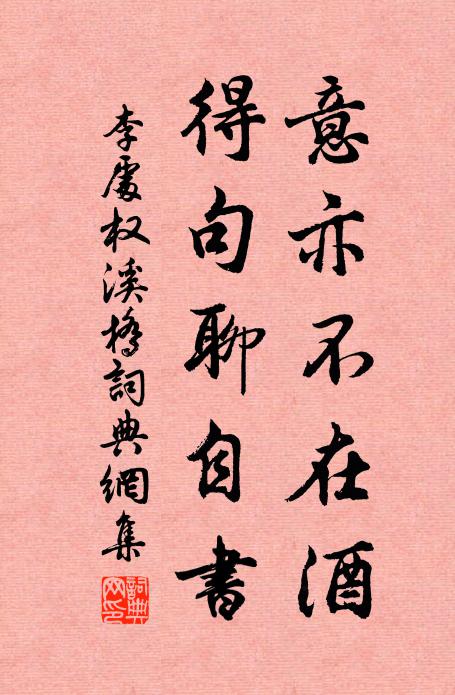 意亦不在酒
得句聊自書
李處权溪橋詞典網集
詞典網印